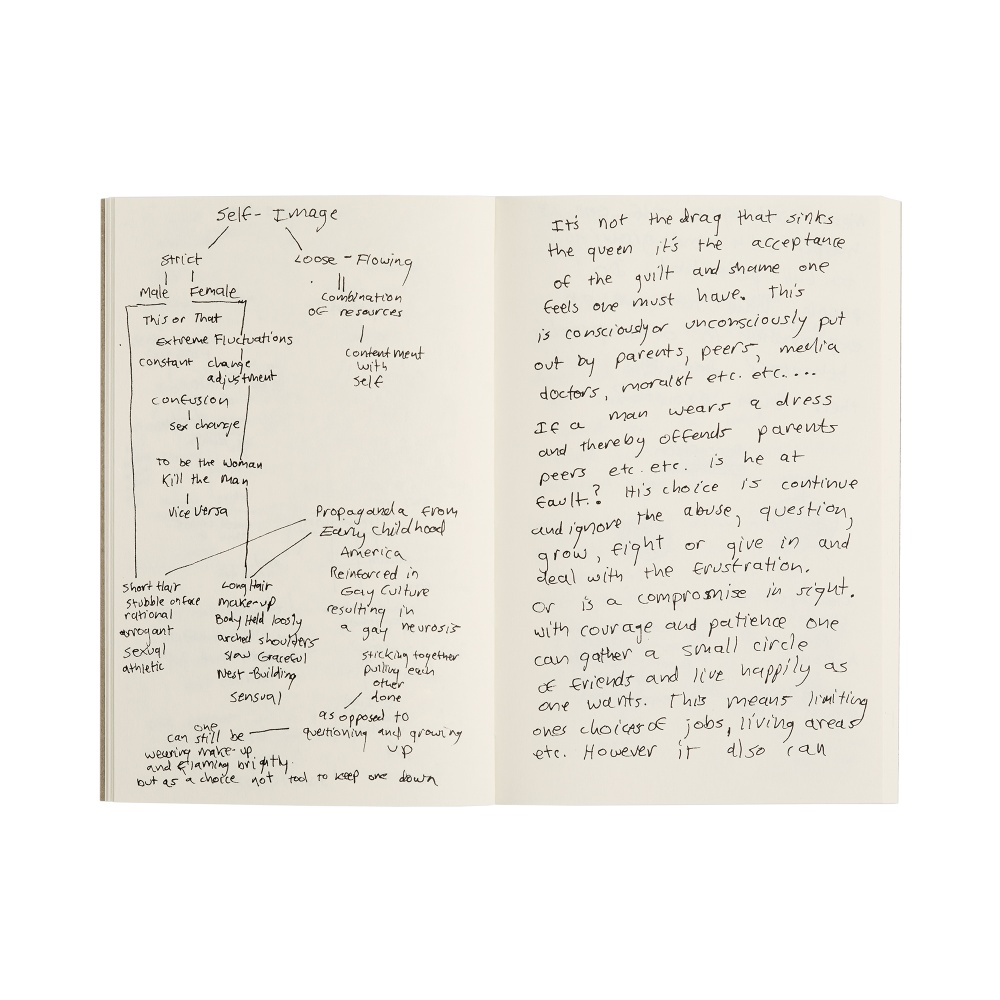 Self-Image
Strict
Loose-Flowing
Male Female
Combination
of resources
This or That
Extreme Fluctuations
contentment
with
self
constant change
adjustment
confusion
sex change
To be the woman
Kill the man
Vice Versa
Propaganda from
Early childhood
America
Reinforced in
Gay Culture
resulting in
a gay neurosis
sticking together
pulling each
other
done
as opposed to
questioning and growing
up
Short Hair
stubble on face
rational
arrogant
sexual
athletic
Long Hair
make-up
Body Held loosly
arched shoulders
slow Graceful
Nest-Building
sensual
one
can still be
wearing make-up
and flaming brightly.
but as a choice not tool to keep one down
It's not the drag that sinks
the queen it's the acceptance
of the guilt and shame one
feels one must have. This
is consciously or unconsciously put
out by parents, peers, media
doctors, moralist etc. etc....
If a man wears a dress
and thereby offends parents
peers etc. etc. is he at
fault.? His choice is continue
and ignore the abuse, question,
grow, fight or give in and
deal with the frustration.
Or is a compromise in sight.
with courage and patience one
can gather a small circle
of friends and live happily as
one wants. This means limiting
ones choices of jobs, living areas
etc. However it also can